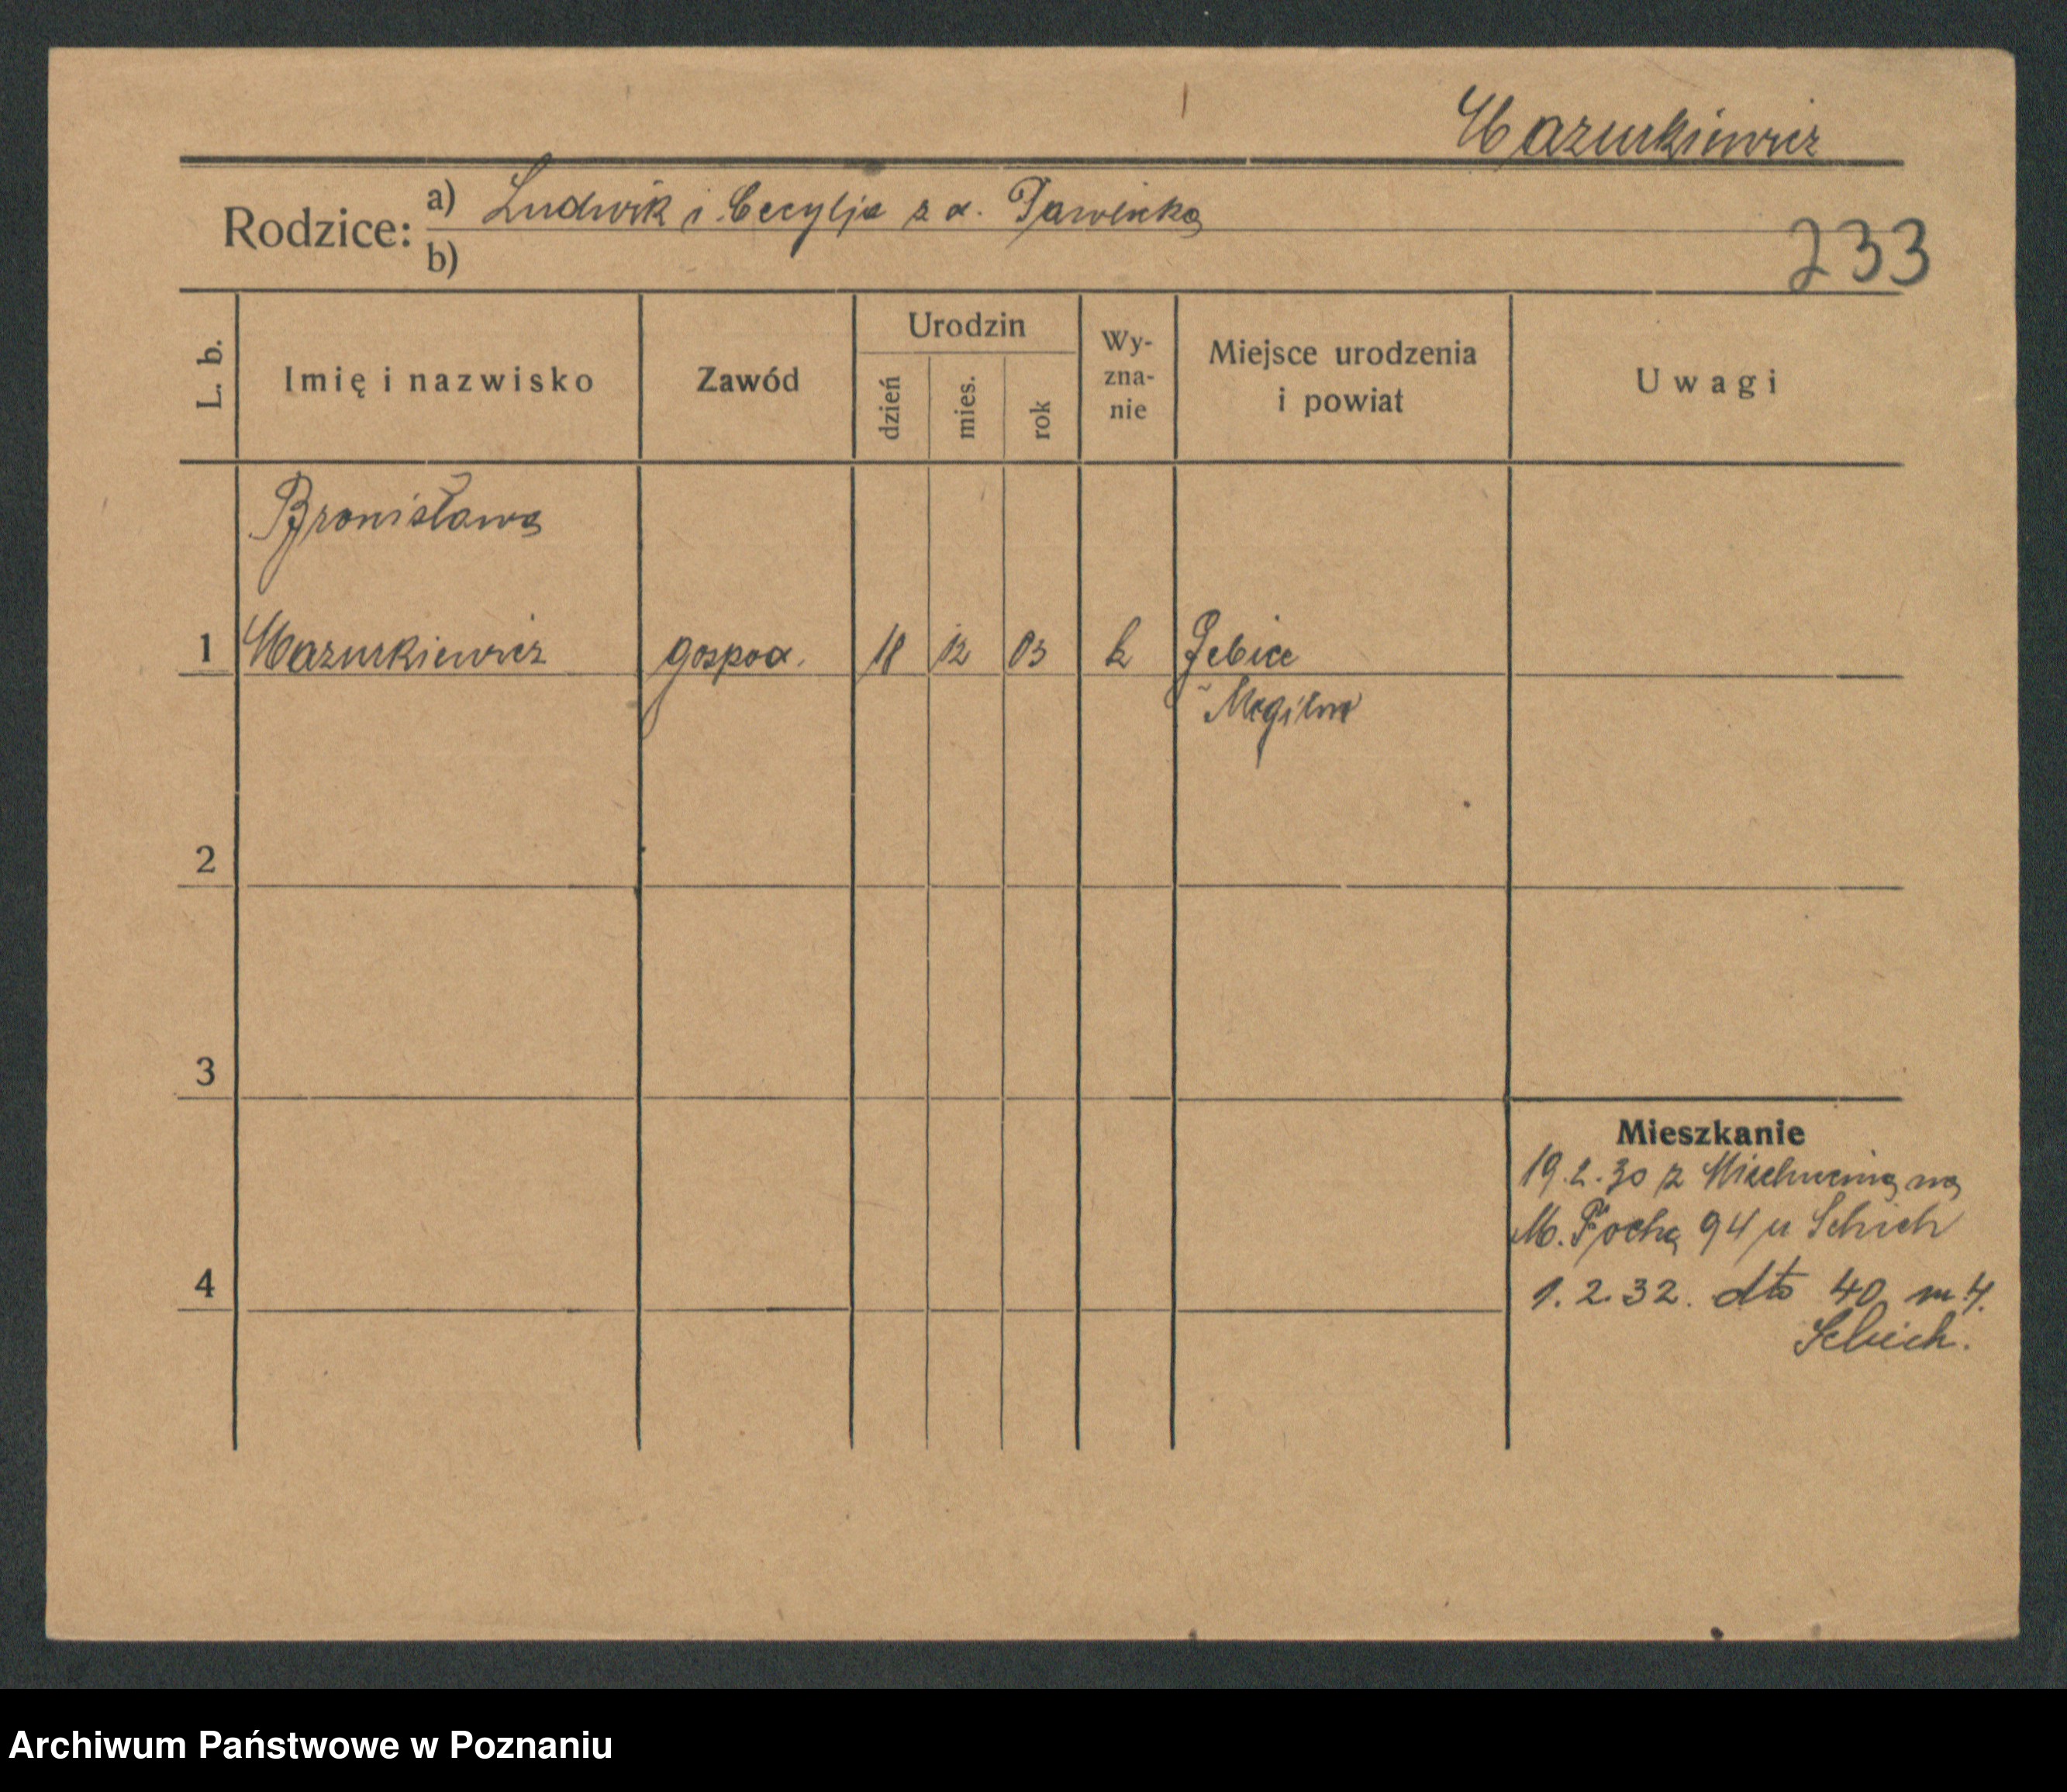 Mazurkiewicz
Rodzice: a) Ludwik i Cecylja z d. Pawlicka
b)
233
L. b.
Imię i nazwisko
Zawód
Urodzin
dzień
mies.
rok
Wy-
zna-
nie
Miejsce urodzenia
i powiat
Uwagi
Bronisława
1 Mazurkiewicz gospod. 18 12 03 k Gębice
Mogilno
2
3
4
Mieszkanie
19.2.30 z na
M. Focha 94 u Schich
1.2.32. dto 40 m 4.
Archiwum Państwowe w Poznaniu